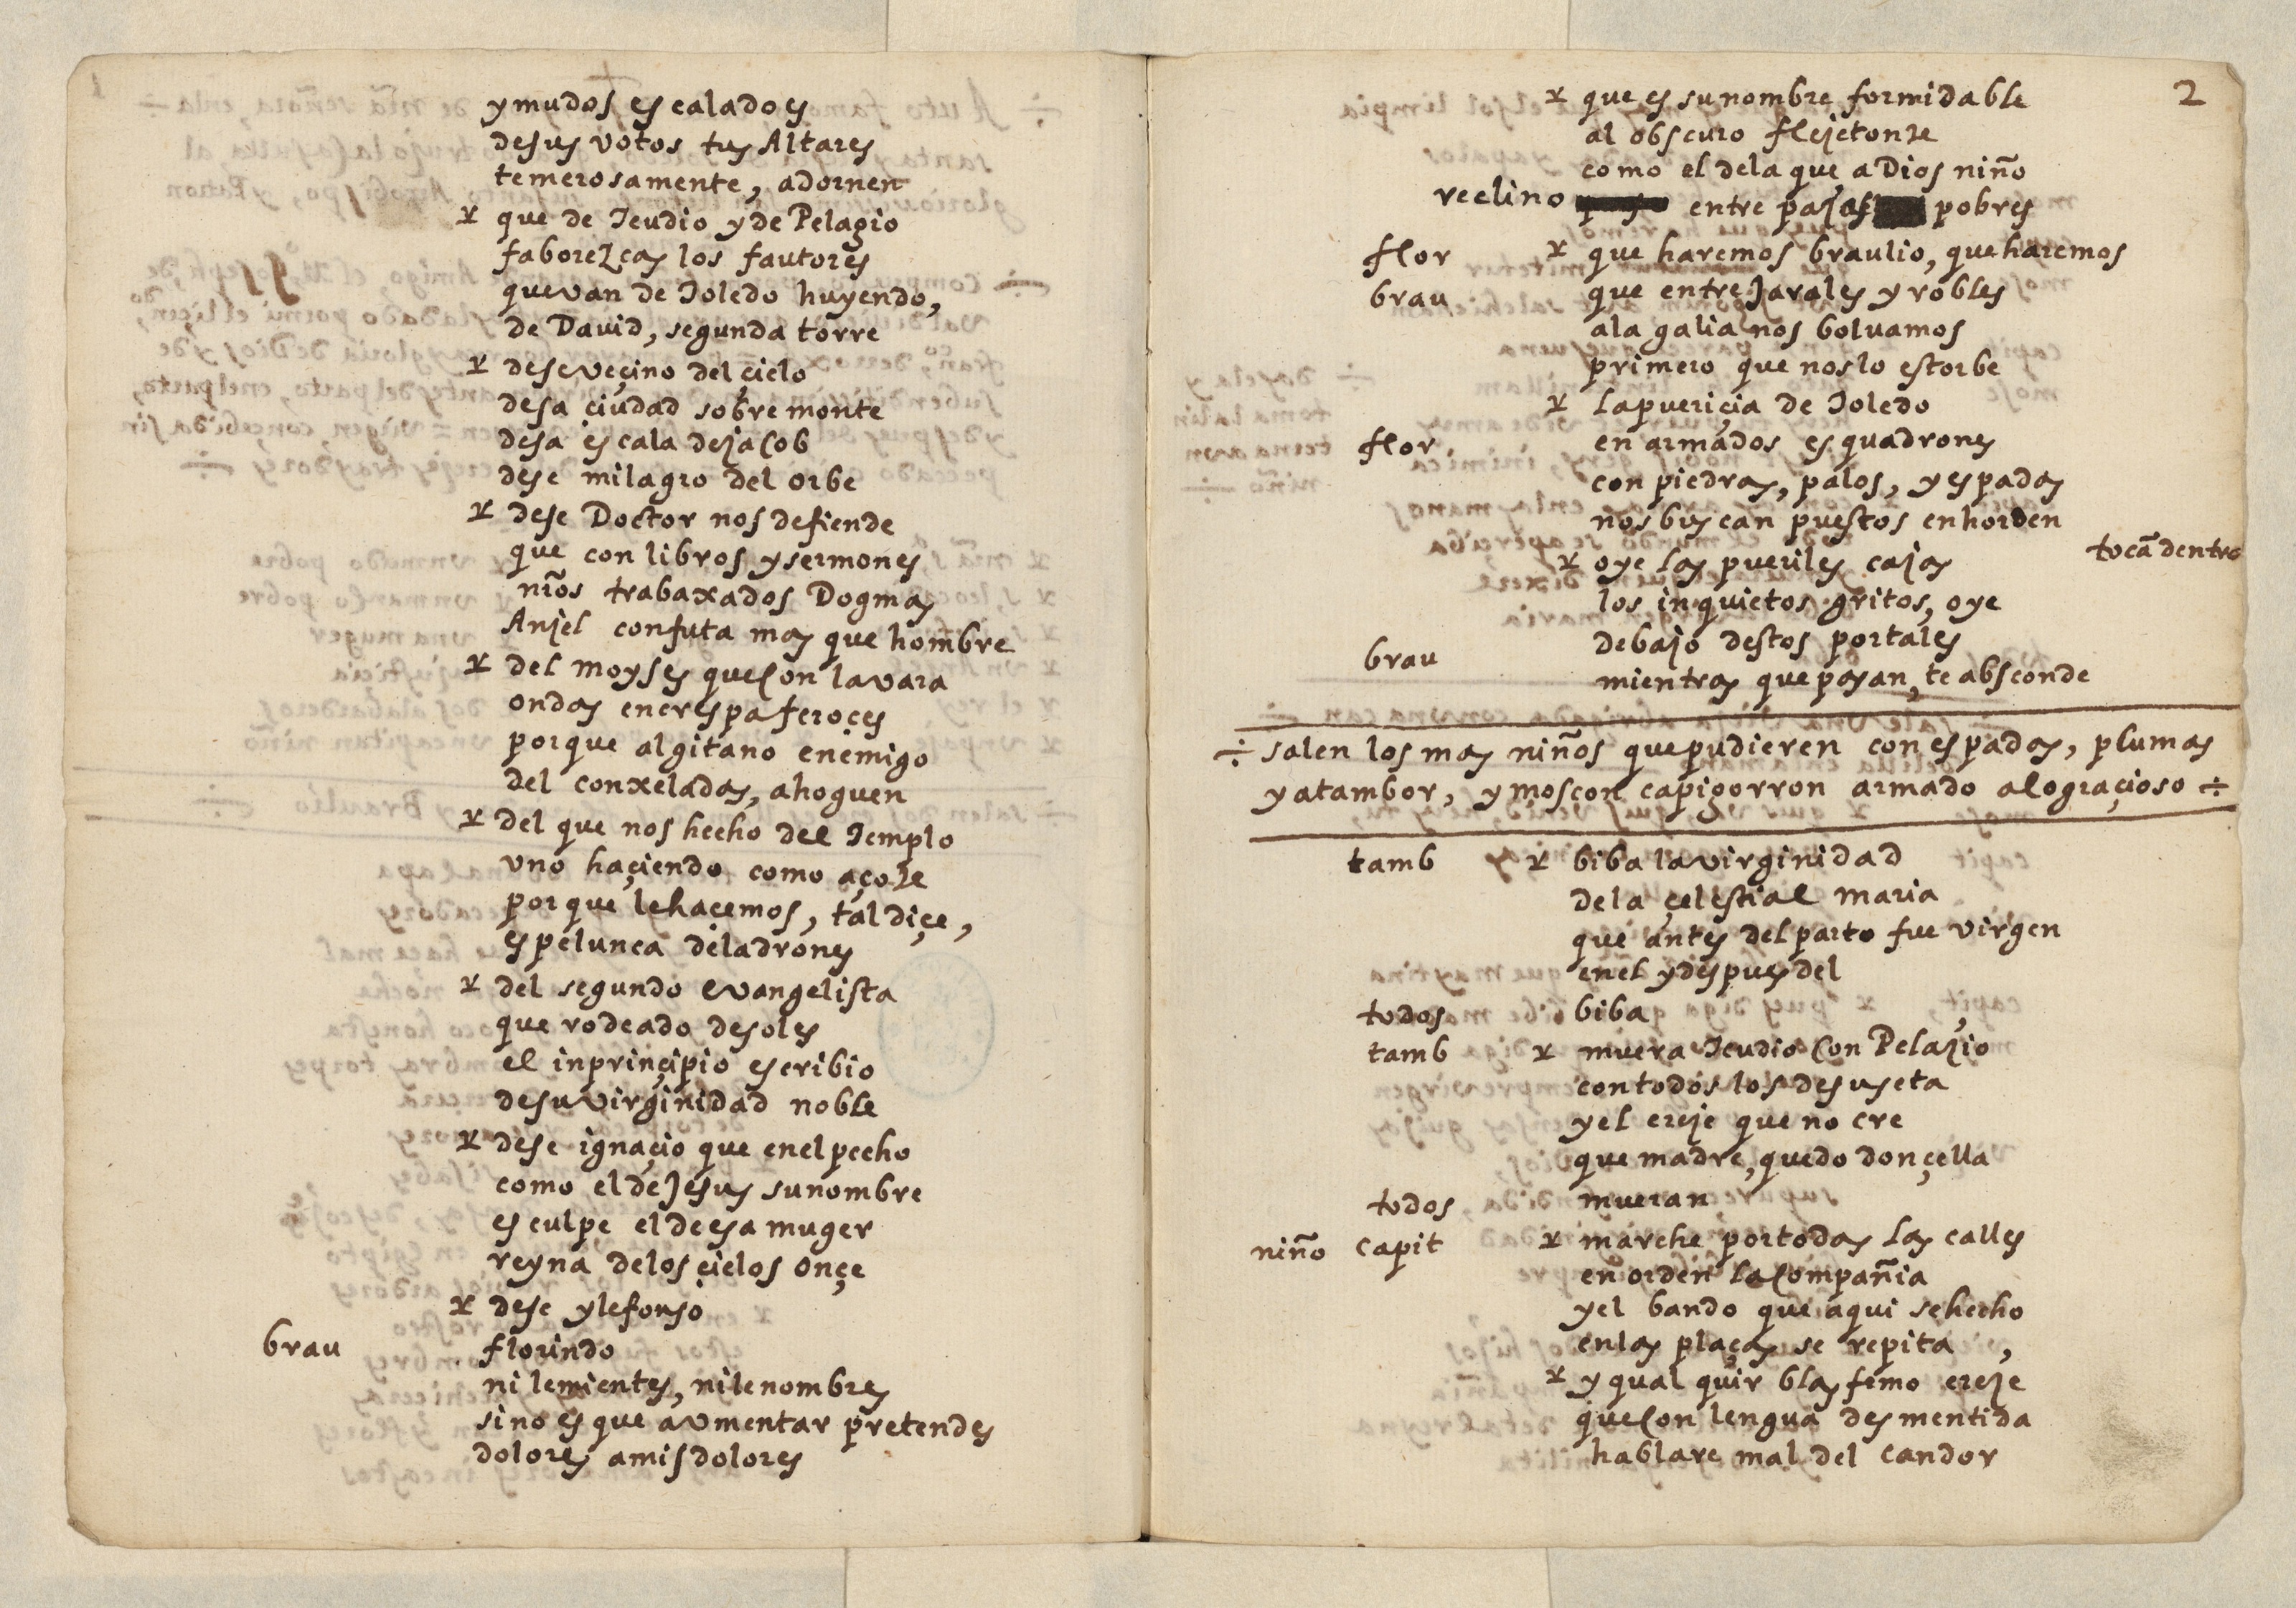 y mudos escaladoes
desus votos tus Altares
temerosamente, adornen
que de Teudio y de Pelagio
faborezcas los fautores
que van de Toledo huyendo,
de Dauid, segunda torre
dese veçino del çielo
desa çiudad sobre monte
desa escala de jacob
dese milagro del orbe
dese Doctor nos defiende
que con libros y sermones
nros trabaxados Dogmas
Anjel confuta mas que hombre
del moyses que con la vara
ondas encrespa feroçes
porque al gitano enemigo
del conxeladas, ahoguen
del que nos hecho del Templo
uno haçiendo como açote
porque le hacemos, tal diçe,
espelunca de ladrones
del segundo evangelista
que rodeado de soles
el in prinçipio escribio
de su virginidad noble
dese ignaçio que en el pecho
como el de Jesus su nombre
esculpe el de esa muger
reyna de los çielos onçe
dese ylefonso
brau florindo
ni le mientes, ni le nombres
sino es que aumentar pretendes
dolores a mis dolores
2
que es su nombre formidable
al obscuro flejetonte
como el de la que a Dios niño
reclino entre pajas pobres
flor que haremos braulio, que haremos
brau que entre Jarales y robles
a la galia nos boluamos
primero que nos lo estorbe
La puericia de Toledo
flor en armados esquadrones
con piedras, palos, y espadas
nos buscan puestos en horden
oye las pueriles cajas tocã dentro
los inquietos gritos, oye
brau debajo destos portales
mientras que pasan, te absconde
÷ salen los mas niños que pudieren con espadas, plumas
y atambor, y moscon capigorron armado a lo graçioso ÷
tamb biba la virginidad
de la çelestial maria
que antes del parto fue virgen
en el y despues del
todos biba
tamb muera Teudio con Pelagio
con todos los de su seta
y el ereje que no cre
que madre, quedo donçella
todos mueran
niño capit marche por todas las calles
en orden la compañia
y el bando que aqui se hecho
en las plaças se repita
y qualquir blasfemo ereje
que con lengua desmentida
hablare mal del candor